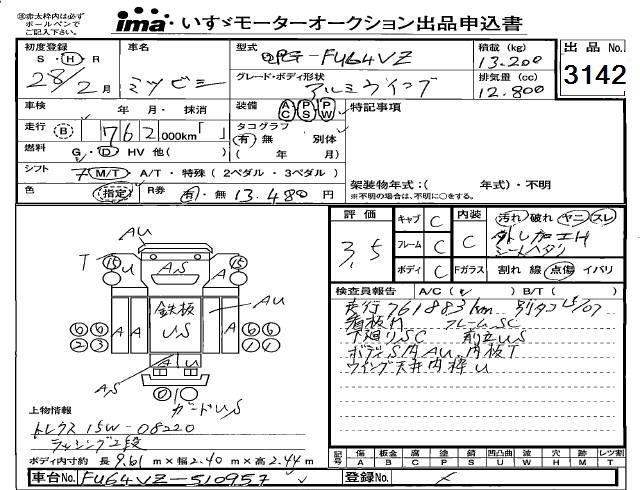 ㊟赤太枠内は必ず
ボールペンで
ご記入下さい。
ima いすゞモーターオークション出品申込書
初度登録
S・H・R
28/2月
車名
ミツビシ
型式
QPG-FU64VZ
積載 (kg)
13,200
出品No.
3142
グレード・ボディ形状
アルミウイング
排気量 (cc)
12,800
車検 年・月・抹消
装備 AC PS PW
特記事項
走行 B 762,000km「 」
タコグラフ
有 無 別体
( 年 月)
燃料 G・D・HV 他( )
シフト 7 M/T・A/T・特殊 (2ペダル・3ペダル)
色 指定 R券 有・無 13,480円
架装物年式:( 年式)・不明
※不明の場合は、不明に○をする。
評価 3.5
キャブ C
フレーム C
ボディ C
内装 C
Fガラス
汚れ 破れ ヤニ スレ
外し加工H
シートヘタリ
割れ 線 点傷 イバリ
検査員報告 A/C( ✓ ) B/T( )
走行761883km 別タコ
看板H フレームSC
下廻りSC 前立US
ボディS内AU、内板T
ウイング天井内枠U
AU
T 15 U AS 15
AU
鉄板
US
A A A A
6 6 6 6
2 3 1 1
A U
A,S
0 1 ガードUS
上物情報
トレクス 15W-08220
ラッシング2段
ボディ内寸約 長 9.61 m×幅 2.40 m×高 2.44 m
記号 傷 A 板金 B 腐 C 塗 P 錆 S 凹凸曲 U 波 W 穴 H 跡 M レツ割 T
車台No. FU64VZ-510957
登録No.